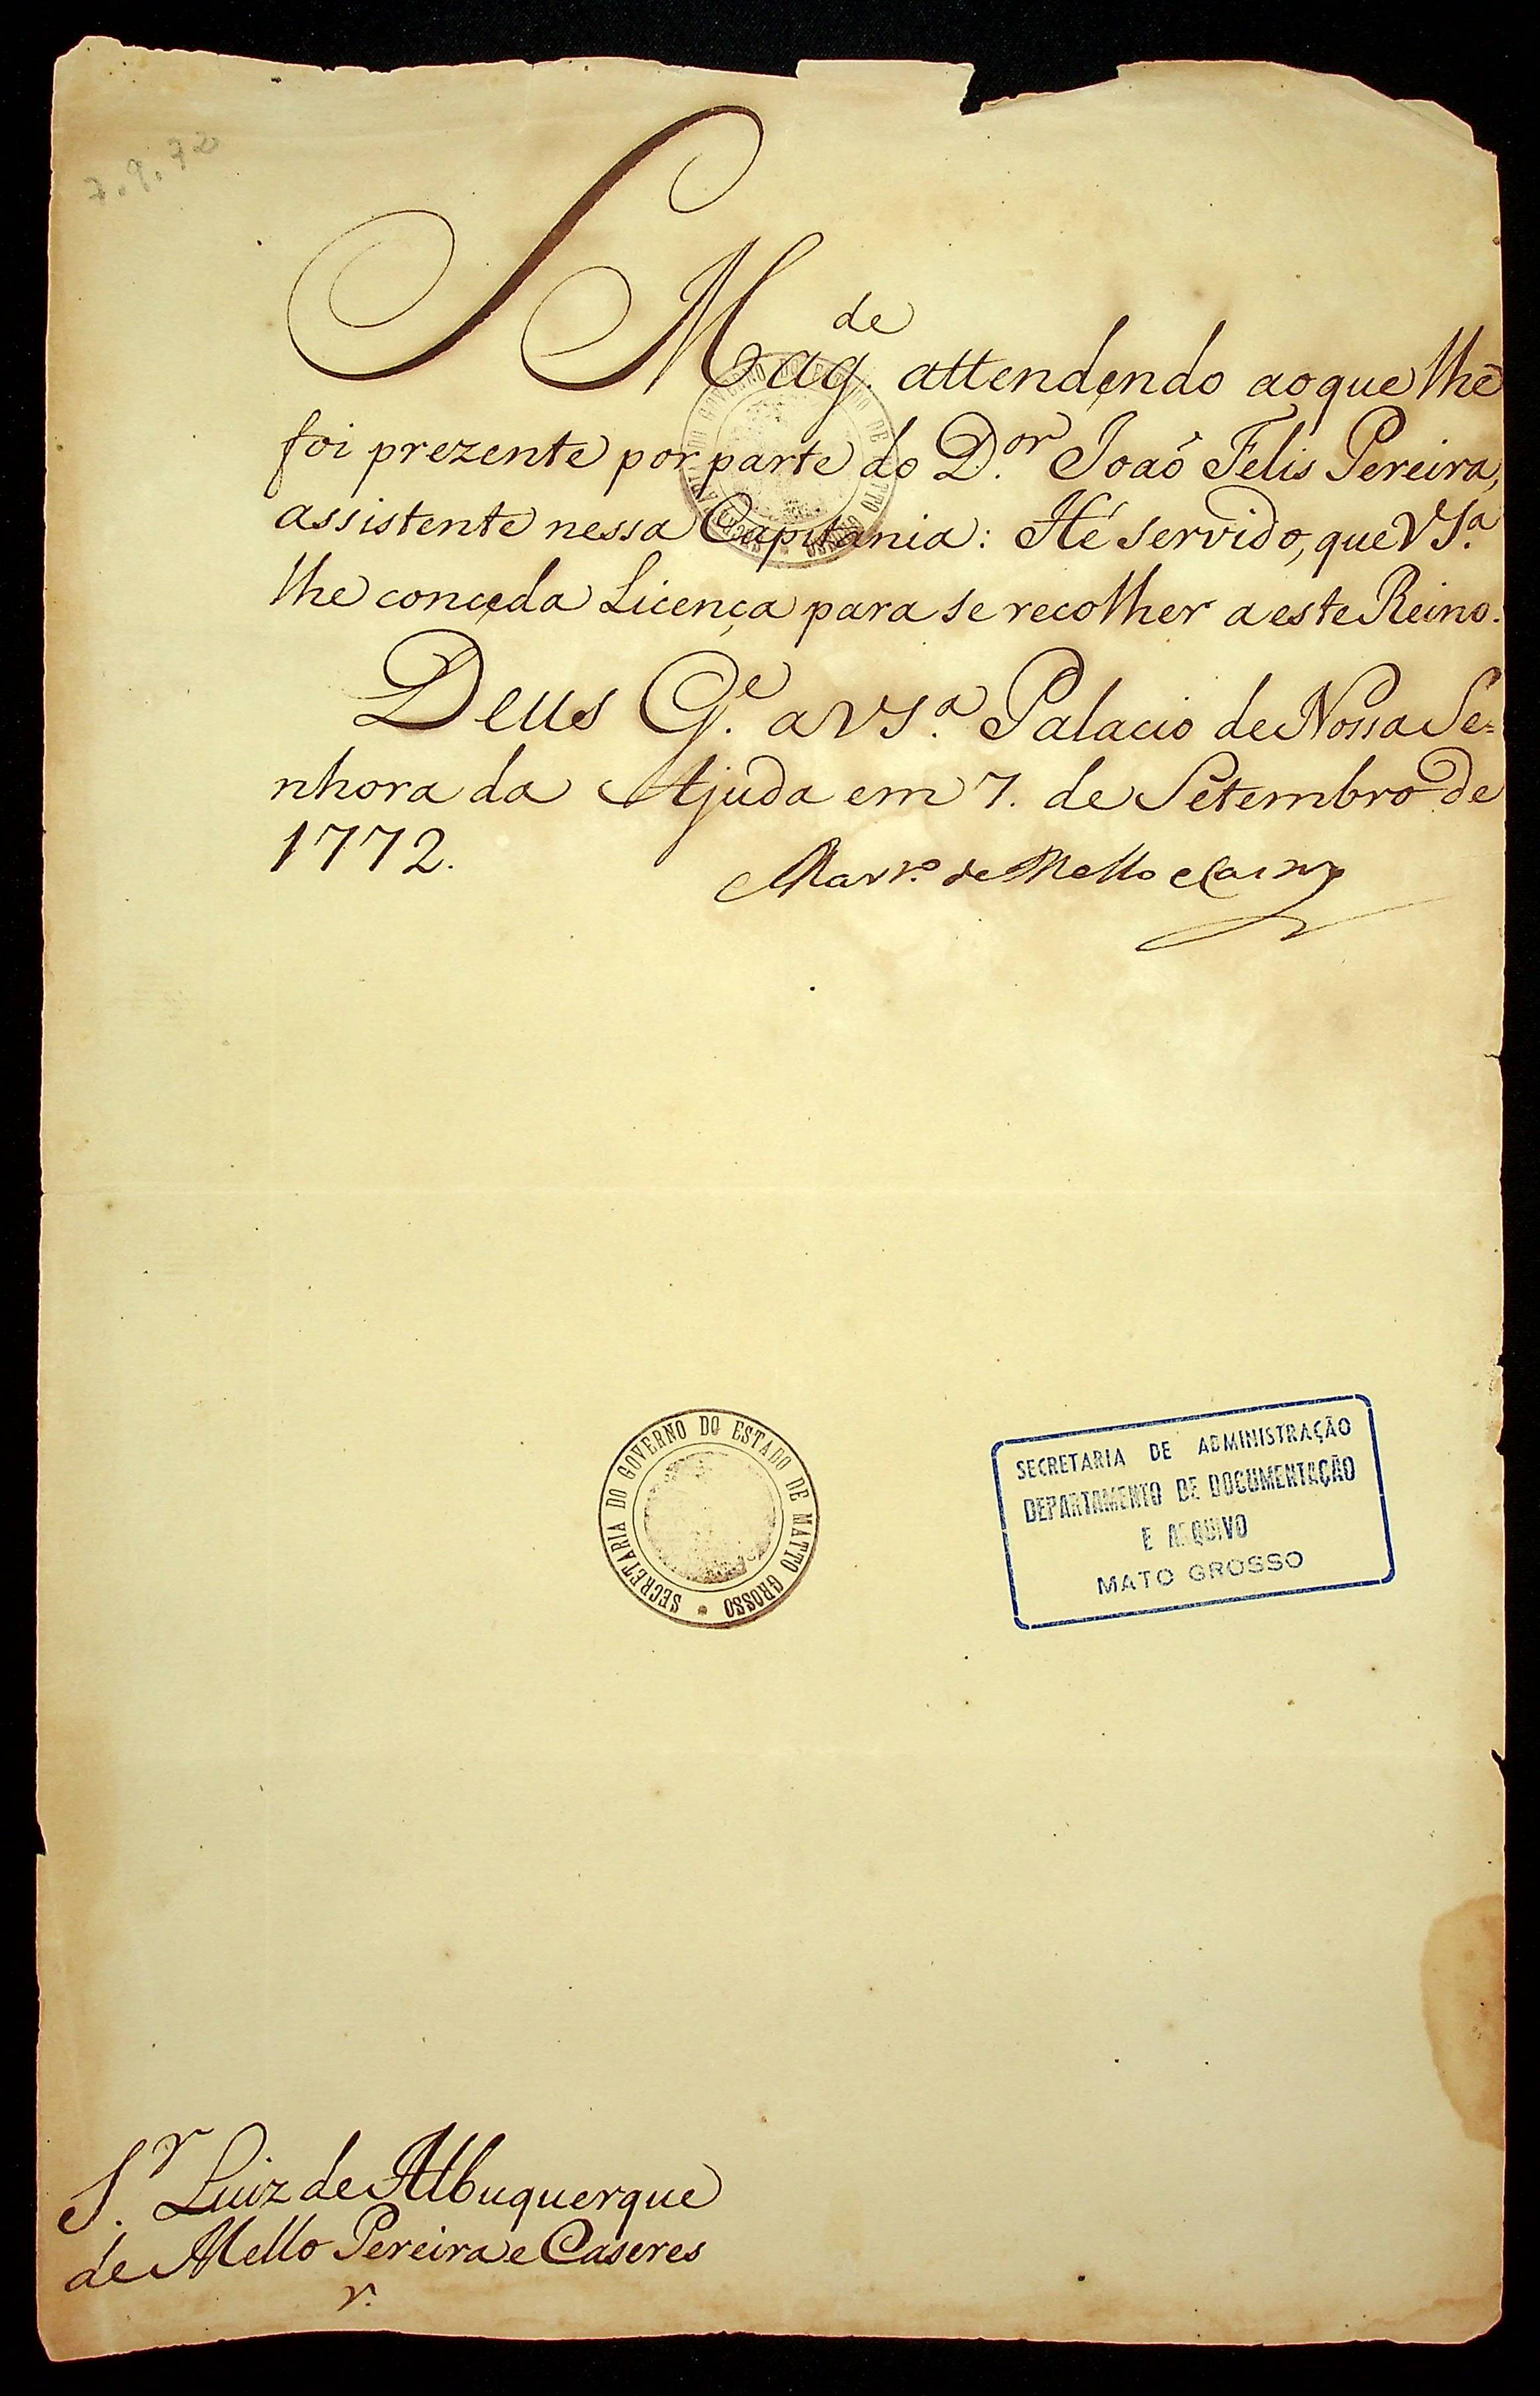 7.9.72
S Mag.de attendendo ao que lhe
foi prezente por parte do D.or Joaõ Felis Pereira,
assistente nessa Capitania: Hé servido, que VS.a
lhe conceda Licença para se recolher a este Reino.
Deus G.e a VS.a Palacio de Nossa Se=
nhora da Ajuda em 7. de Setembro de
1772.
Mart.o de Mello e Castro
SECRETARIA DO GOVERNO DO ESTADO DE MATTO GROSSO
SECRETARIA DO GOVERNO DO ESTADO DE MATTO GROSSO
SECRETARIA DE ADMINISTRAÇÃO
DEPARTAMENTO DE DOCUMENTAÇÃO
E ARQUIVO
MATO GROSSO
S.r Luiz de Albuquerque
de Mello Pereira e Caseres